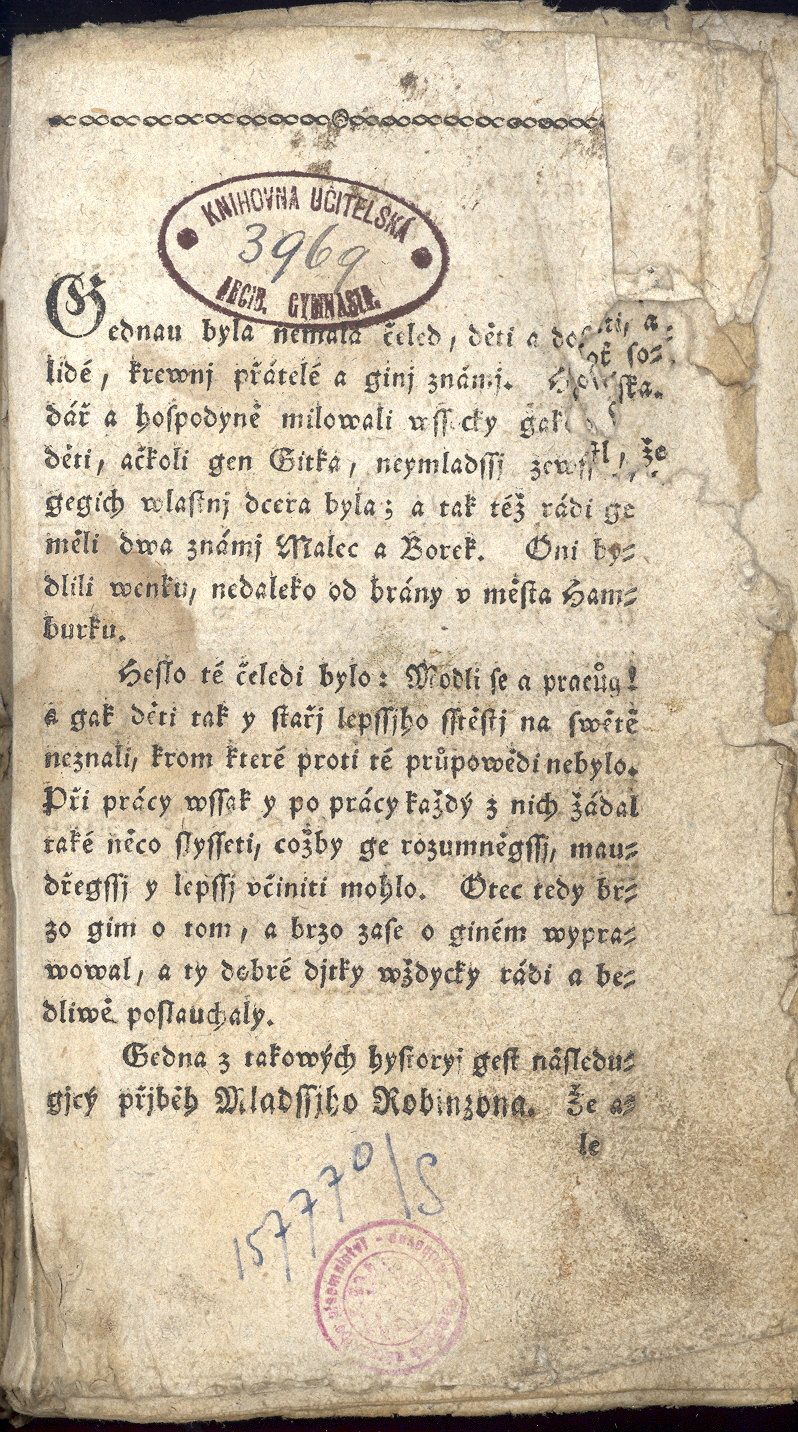 KNIHOVNA UČITELSKÁ
3969
GYMNASIA.
Gednau byla nemalá čeled, děti a
lidé, krewnj přátelé a ginj známj.
dář a hospodyně milowali wssecky gak
děti, ačkoli gen Gitka, neymladssj
gegich wlastnj dcera byla; a tak též rádi ge
měli dwa známj Malec a Borek. Oni by⸗
dlili wenku, nedaleko od brány v města Ham⸗
burku.
Heslo té čeledi bylo: Modli se a pracůg!
a gak děti tak y stařj lepssjho sstěstj na swětě
neznali, krom které proti té průpowědi nebylo.
Při prácy wssak y po prácy každý z nich žádal
také něco slysseti, cožby ge rozumněgssj, mau⸗
dřegssj y lepssj včiniti mohlo. Otec tedy br⸗
zo gim o tom, a brzo zase o giném wypra⸗
wowal, a ty dobré djtky wždycky rádi a be⸗
dliwě poslauchaly.
Gedna z takowých hystoryj gest následu⸗
gjcý přjběh Mladssjho Robinzona. Že a⸗
le
157770/S